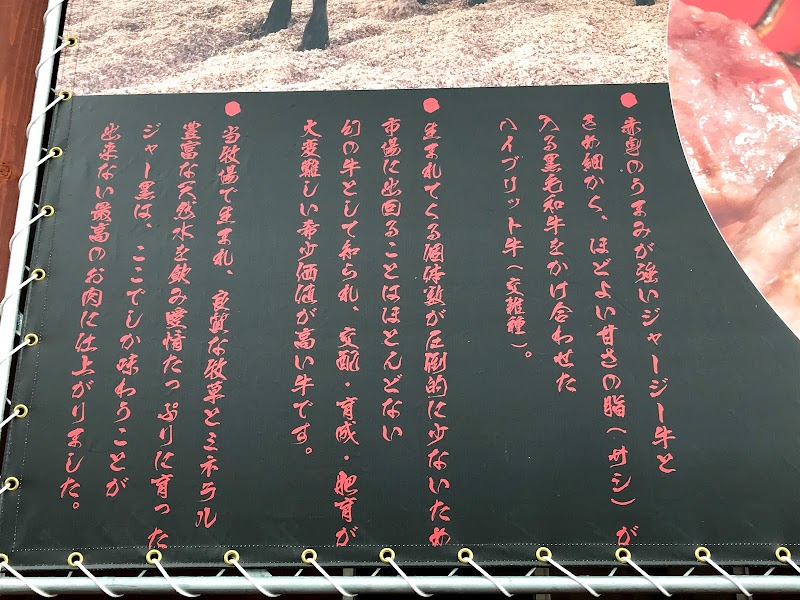 ●赤身のうまみが強いジャージー牛と
きめ細かく、ほどよい甘さの脂(サシ)が
入る黒毛和牛をかけ合わせた
ハイブリット牛(交雑種)。
●生まれてくる個体数が圧倒的に少ないため
市場に出回ることはほとんどない
幻の牛として知られ、交配・育成・肥育が
大変難しい希少価値が高い牛です。
●当牧場で生まれ、良質な牧草とミネラル
豊富な天然水を飲み愛情たっぷりに育った
ジャー黒は、ここでしか味わうことが
出来ない最高のお肉に仕上がりました。